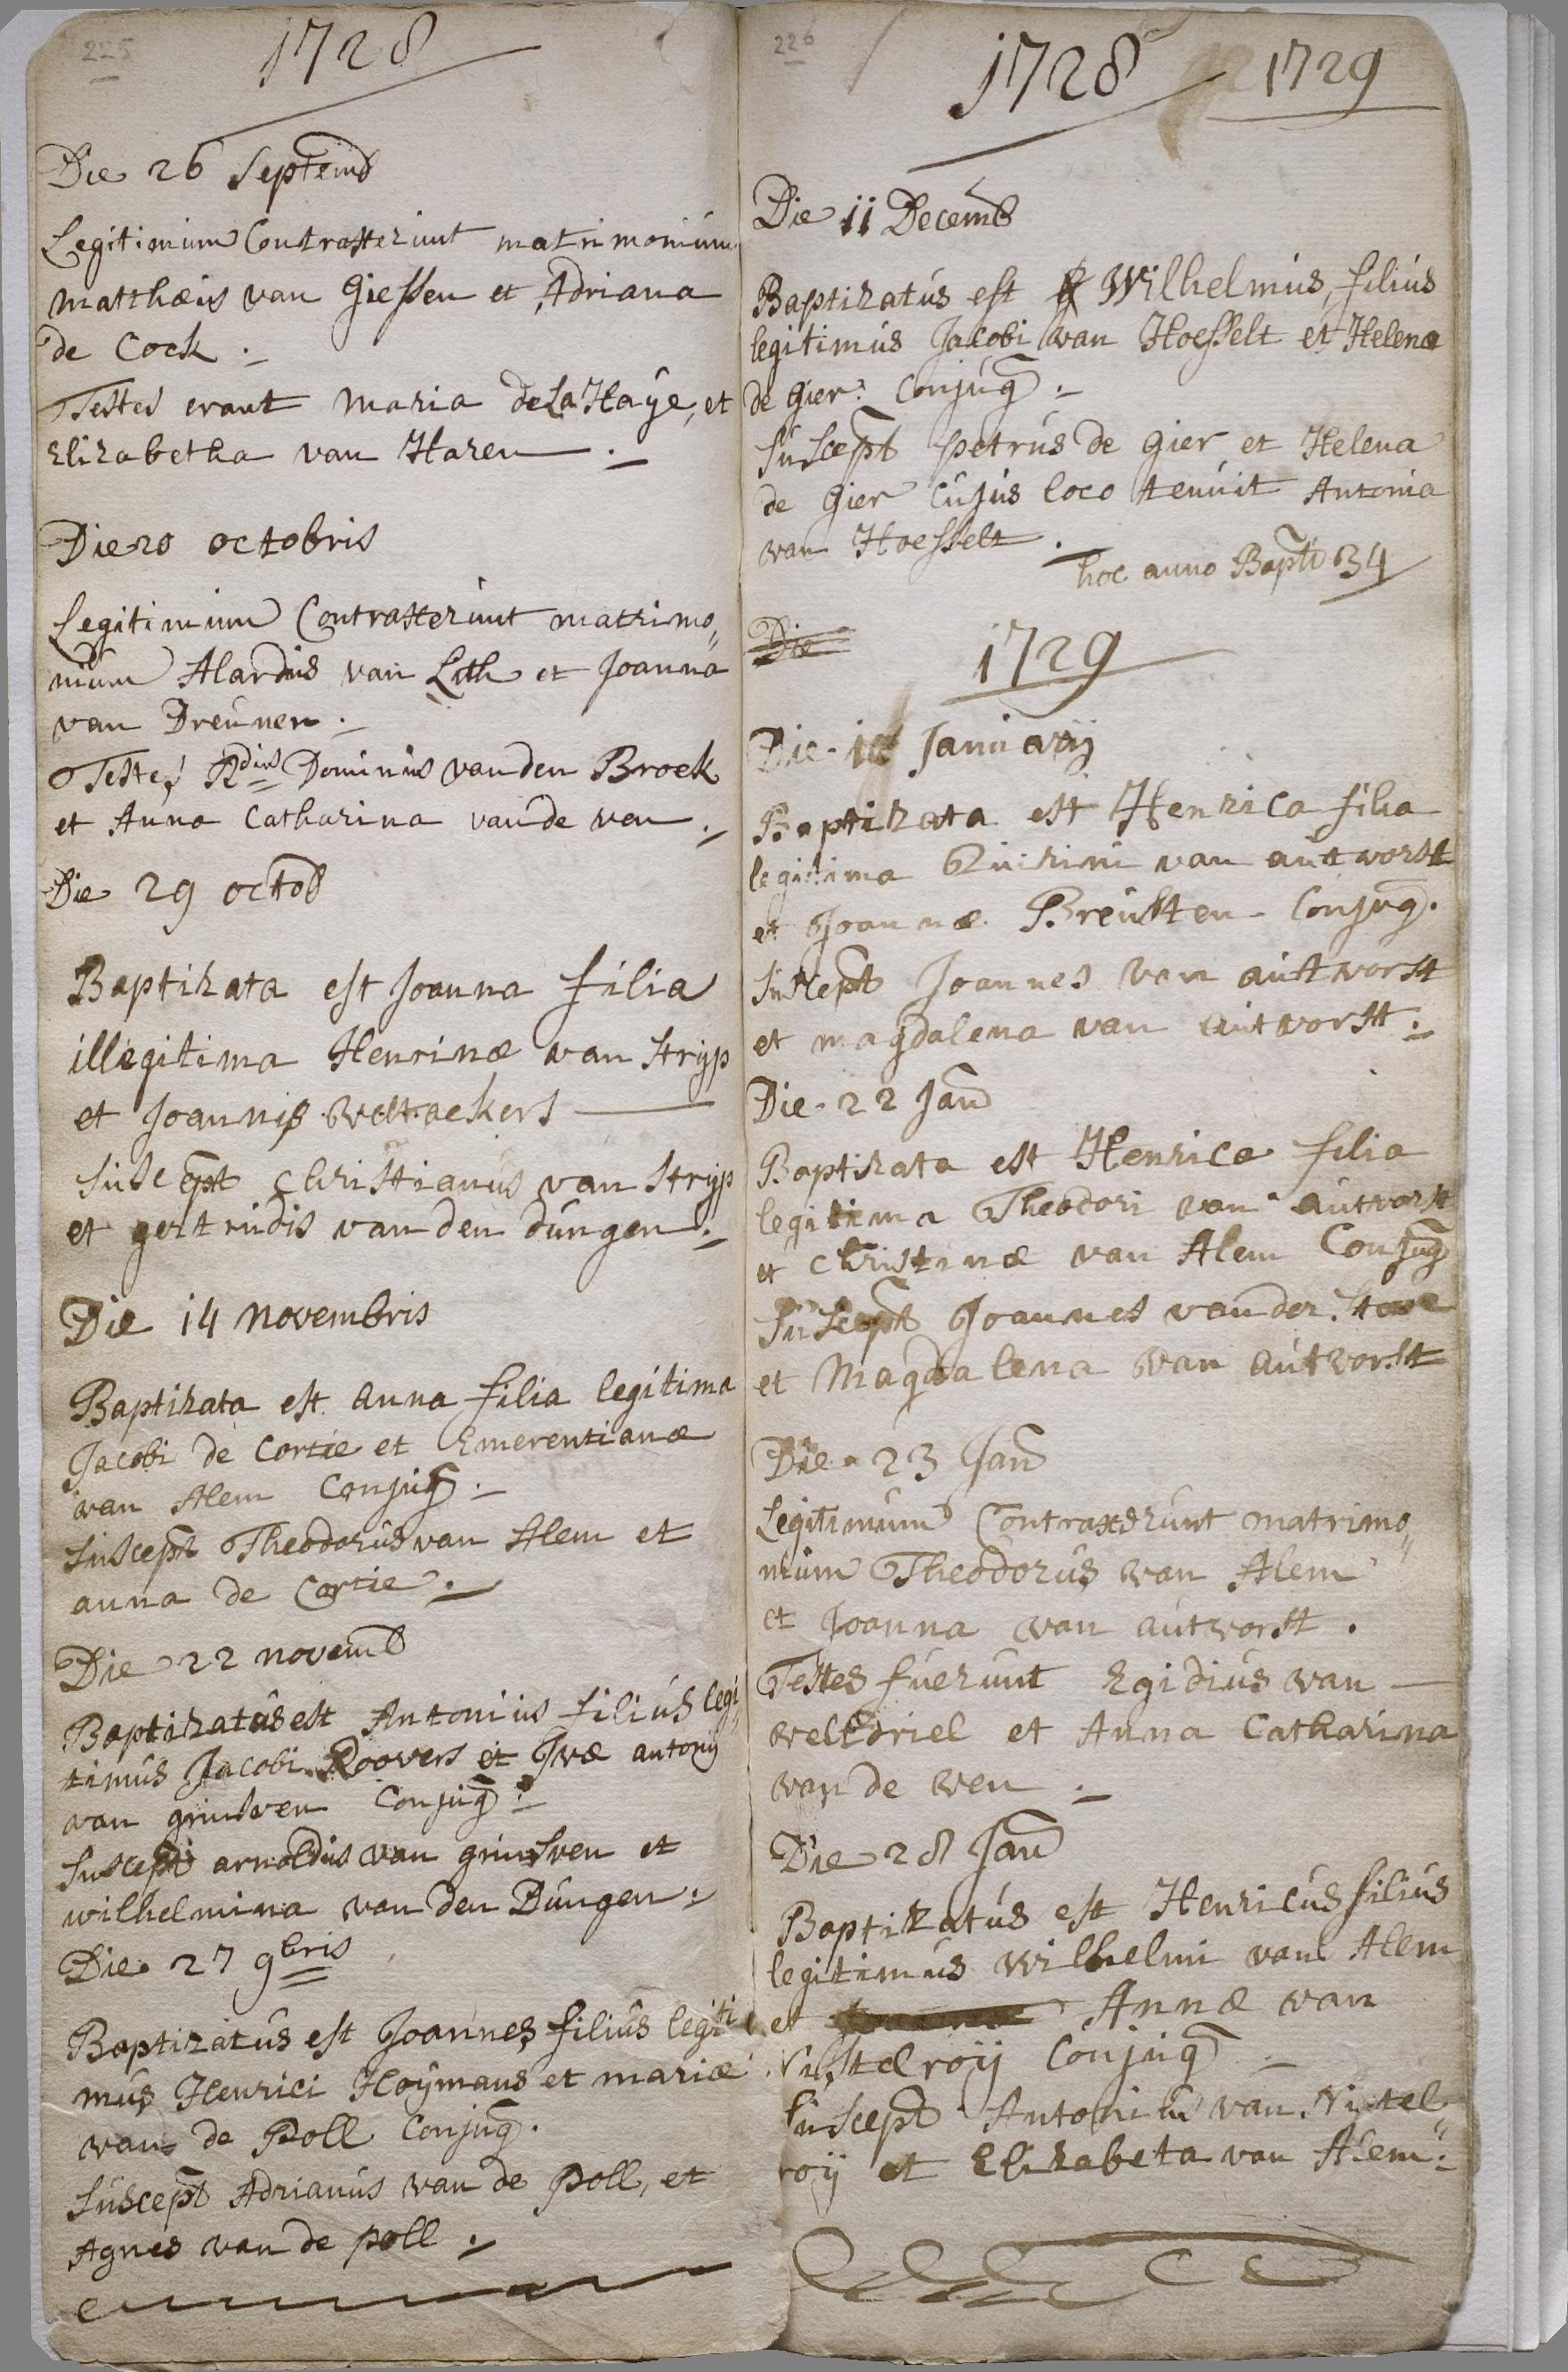 225
1728
Die 26 Septemb
Legitimum Contraxerunt matrimonium
matthæus van Giessen et Adriana
de Cock .
Testes erant Maria de La Haÿe, et
Elizabetha van Haren .
Die 20 octobris
Legitimum Contraxerunt matrimo„
nium Alardus van Lith et Joanna
van Dreunen .
Testes Rdus Dominus vanden Broek
et Anna Catharina vande ven .
Die 29 octob
Baptizata est Joanna filia
illegitima Henrinæ van Strijp
et Joannis
Suscept Christianus van Strijp
et gertrudis van den dungen .
Die 14 Novembris
Baptizata est anna filia legitima
Jacobi de Cortie et Emerentianæ
van Alem Conjug .
Suscept Theodorus van Alem et
anna de Cortie .
Die 22 novemb
Baptizatus est Antonius filius legi„
timus Jacobi Roovers et Ivæ antonij
van grinsven Conjug :
Suscept arnoldus van grinsven et
wilhelmina van den Dungen .
Die 27 9bris
Baptizatus est Joannes filius legiti
mus Henrici Hoÿmans et mariæ
van de Poll Conjug .
Suscept Adrianus van de Poll, et
Agnes van de poll .
226
1728 1729
Die 11 Decemb
Baptizatus est Wilhelmus, filius
legitimus Jacobi van Hoesselt et Helenæ
de Gier : Conjug .
Suscept petrus de Gier et Helena
de Gier Cujus loco tenuit Antonia
van Hoesselt .
hoc anno Bapti 34
Die
1729
Die Januarij
Baptizata est Henrica filia
legitima Quirini van autvorst
et Joannæ Breusten Conjug .
Suscept Joannes van autvorst
et magdalena van autvorst .
Die 22 Jan
Baptizata est Henrica filia
legitima Theodori van autvorst
et Christinæ van Alem Conjug
Suscept Joannes vander
et Magdalena van autvorst
Die 23 Jan
Legitimum Contraxerunt matrimo„
nium Theodorus van Alem
et Joanna van autvorst .
Testes fuerunt Egidius van
veldriel et Anna Catharina
van de ven .
Die 28 Jan
Baptizatus est Henricus filius
legitimus Wilhelmi van Alem
et Annæ van
Nistelroij Conjug
Suscept Antonius van Nistel„
roij et Elizabeta van Alem .